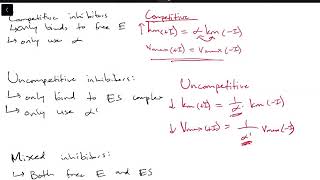 Competitive inhibitors
↳ only binds to free E
↳ only use α
Competitive
↑ Km(+I) = α Km(-I)
Vmax(+I) = Vmax(-I)
Uncompetitive inhibitors:
↳ only bind to ES complex
↳ only use α'
Uncompetitive
↓ Km(+I) = 1/α' Km(-I)
↓ Vmax(+I) = 1/α' Vmax(-I)
Mixed inhibitors:
↳ Both free E and ES